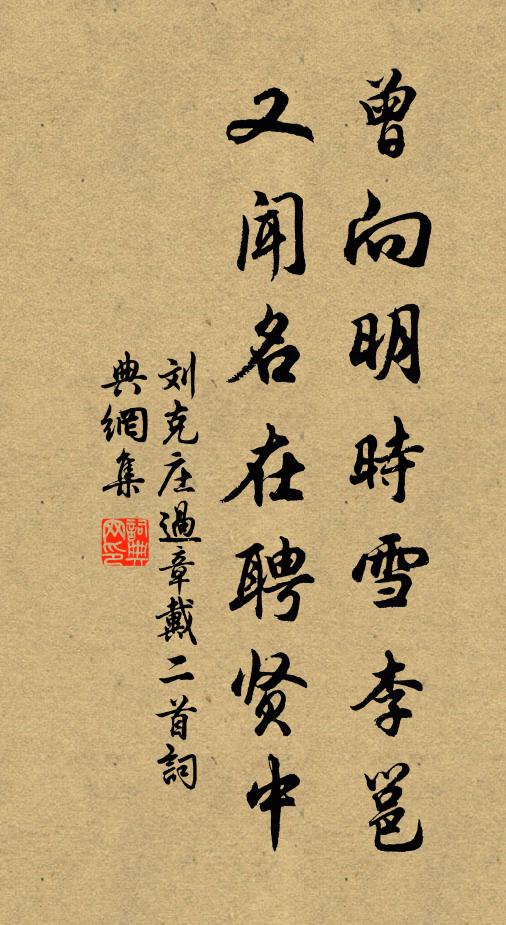 曾向明時雪李邕
又聞名在聘贤中
刘克庄過章戴二首詞
典網集
詞典网印